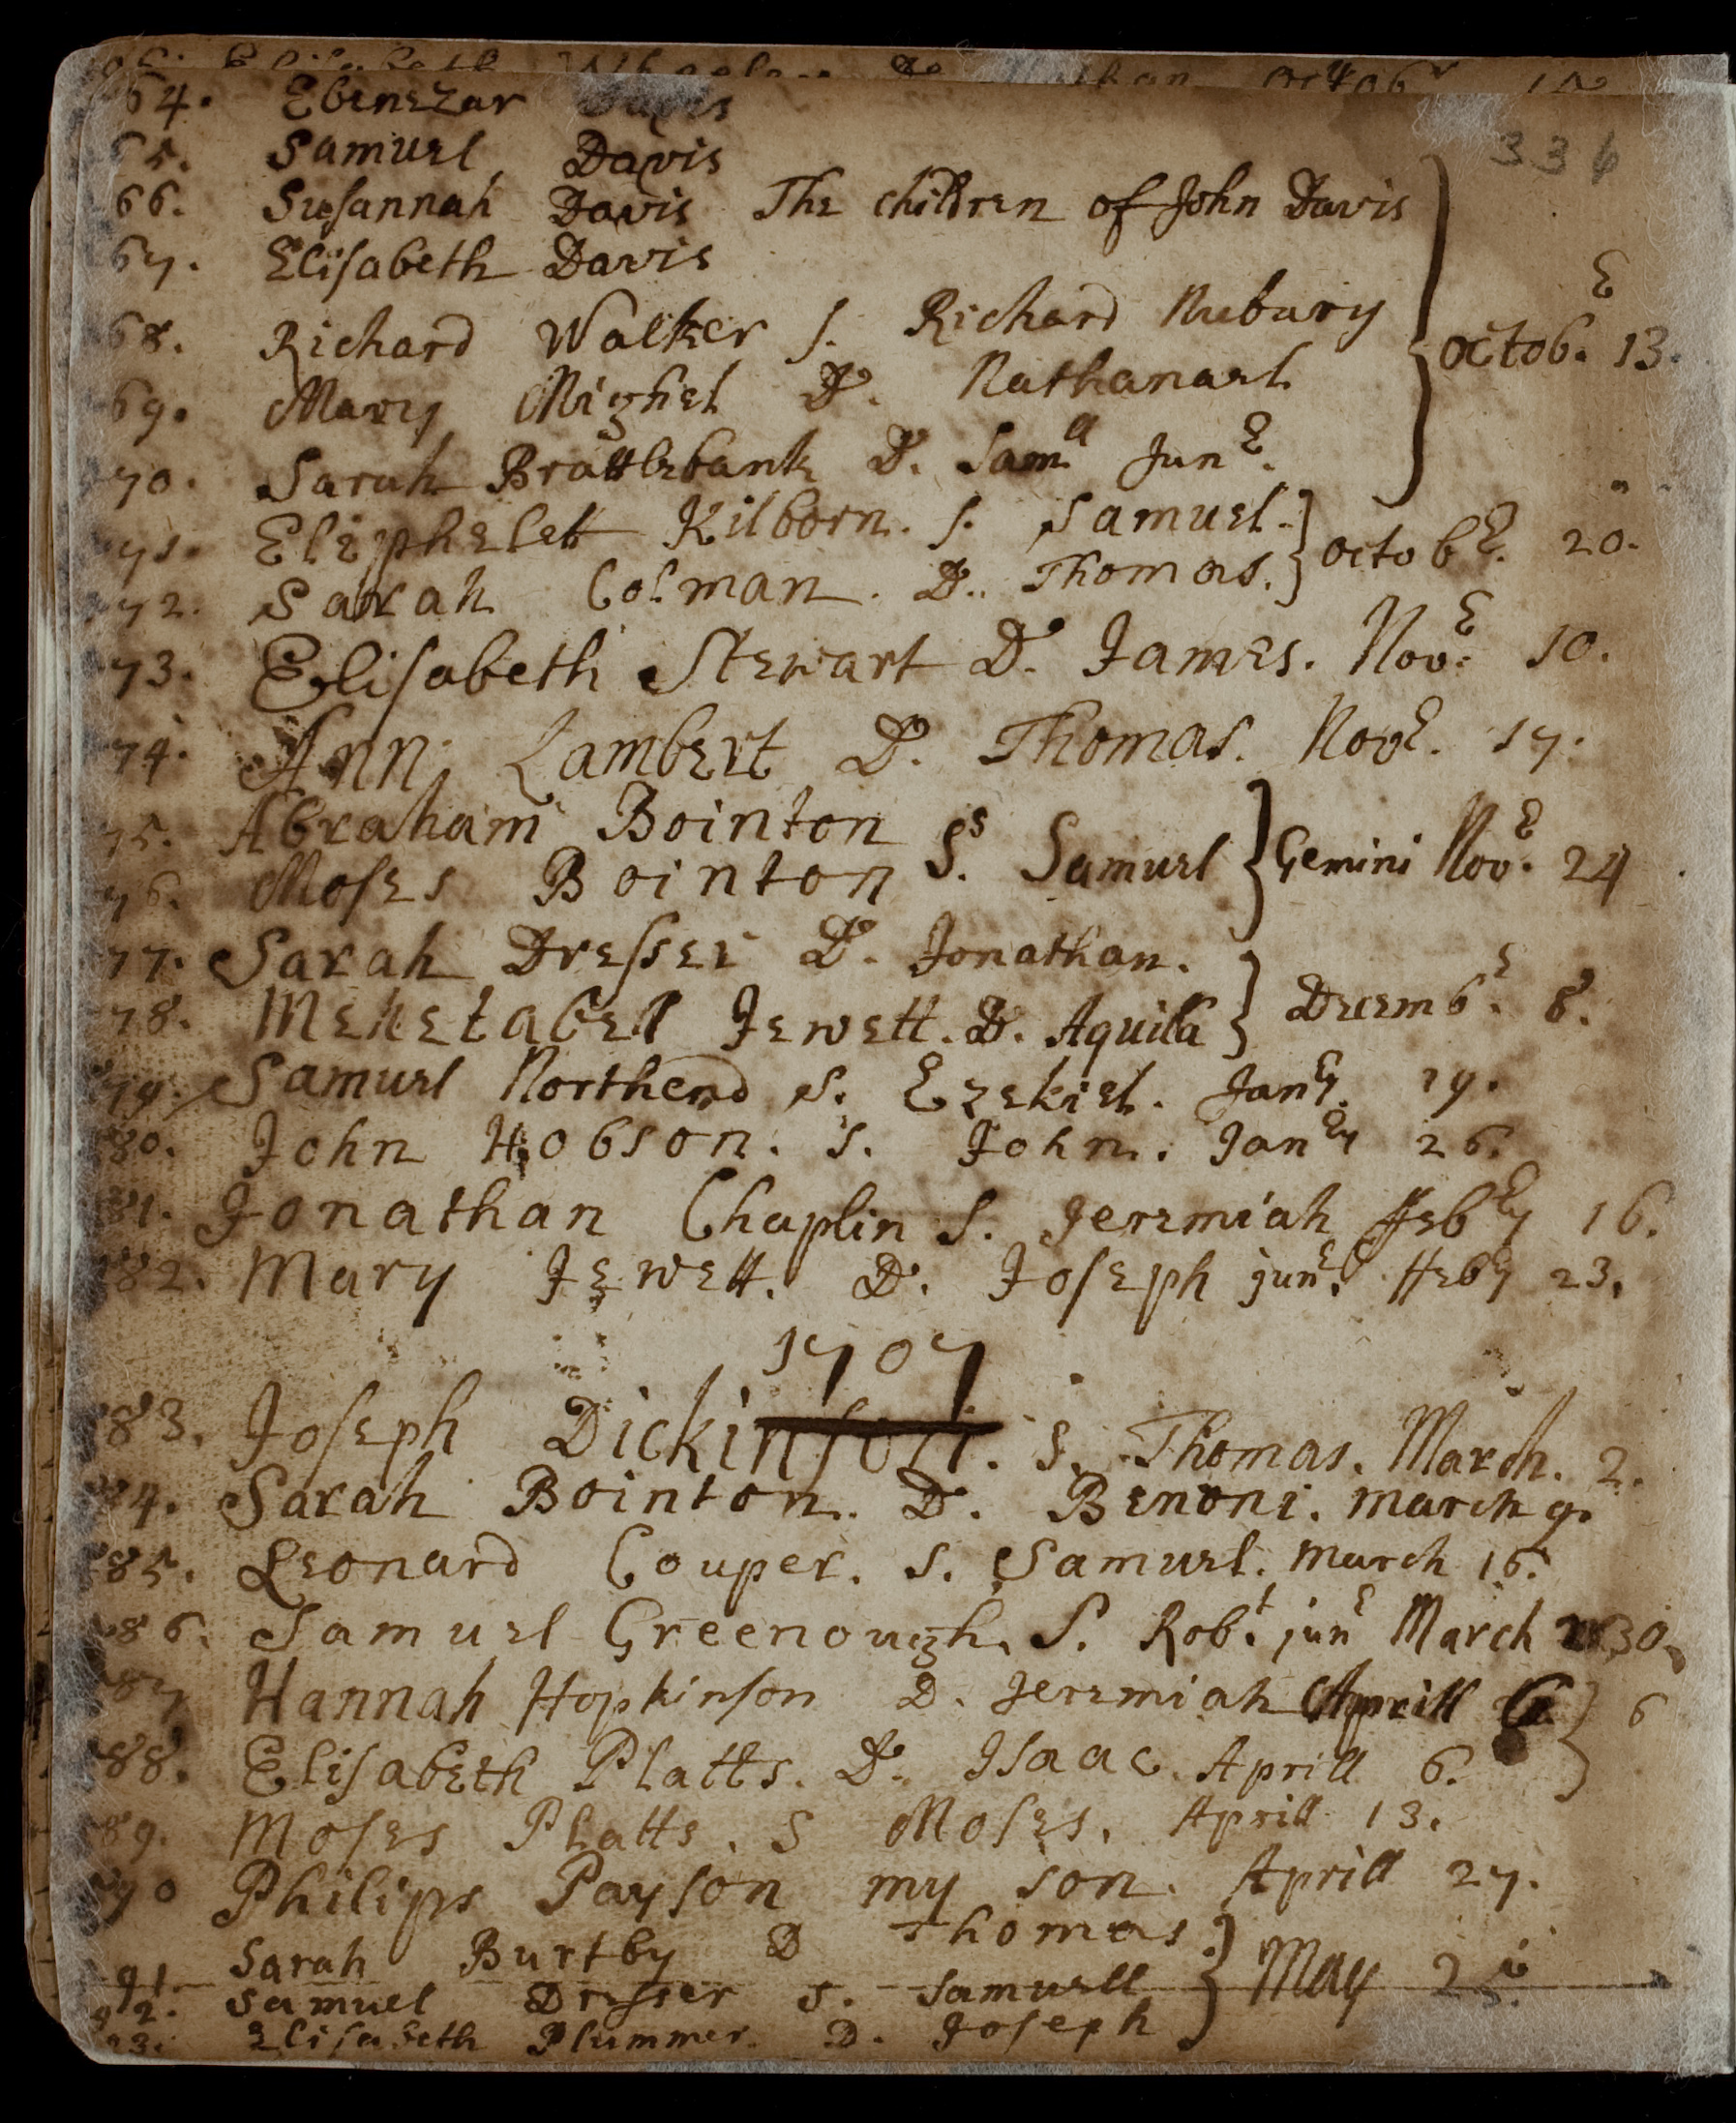 Elisabeth Wheeler
336
64. Ebenezar Davis
65. Samuel Davis
66. Susannah Davis The children of John Davis
67. Elisabeth Davis
68. Richard Walker s. Richard Nubury
69. Mary Mighel D. Nathanael
70. Sarah Brattlebank D. Samll Junr.
Octobr. 13.
71. Eliphelett Kilborn. s. Samuel.
72. Sarah Colman. D. Thomas.
Octobr. 20.
73. Elisabeth Stewart D. James. Novr. 10.
74. Ann Lambert D. Thomas. Novr. 17.
75. Abraham Bointon
76. Moses Bointon Ss. Samuel
Gemini Novr. 24
77. Sarah Dresser D. Jonathan.
78. Mehetabel Jewett. D. Aquila
Decembr. 8.
79. Samuel Northend s. Ezekiel. Janry. 19.
80. John Hobson. s. John. Janry 26.
81. Jonathan Chaplin s. Jeremiah Febry 16.
82. Mary Jewett. D. Joseph junr. Feby 23.
1707
83. Joseph Dickinson. s. Thomas. March. 2.
84. Sarah Bointon. D. Benoni. march 9.
85. Leonard Couper. s. Samuel. march 16.
86. Samuel Greenough. S. Robt. junr March 30.
87 Hannah Hopkinson D. Jeremiah Aprill 6. 6
88. Elisabeth Platts. D. Isaac. Aprill 6.
89. Moses Platts. s Moses. Aprill 13.
90 Philips Payson my son. Aprill 27.
91. Sarah Burtby D Thomas.
92. Samuel Dresser s. Samuell
93. Elisabeth Plummer D. Joseph
May